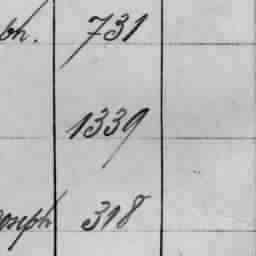 ph. 731
1339
oseph 318